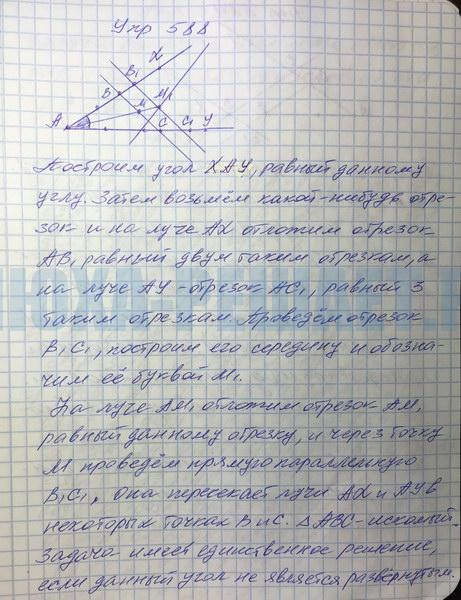 Упр 588
X
B₁
B
M
M₁
A
C
C₁
У
Построим угол ХАУ, равный данному
углу. Затем возьмём какой-нибудь отре-
зок и на луче АХ отложим отрезок
АВ₁ равный двум таким отрезкам, а
на луче АУ - отрезок АС₁, равный 3
таким отрезкам. Проведём отрезок
В₁С₁, построим его середину и обозна-
чим её буквой М₁.
На луче АМ₁ отложим отрезок АМ,
равный данному отрезку, и через точку
М проведём прямую параллельную
В₁С₁, Она пересекает лучи АХ и АУ в
некоторых точках В и С. △ АВС - искомый.
Задача имеет единственное решение,
если данный угол не является развёрнутым.